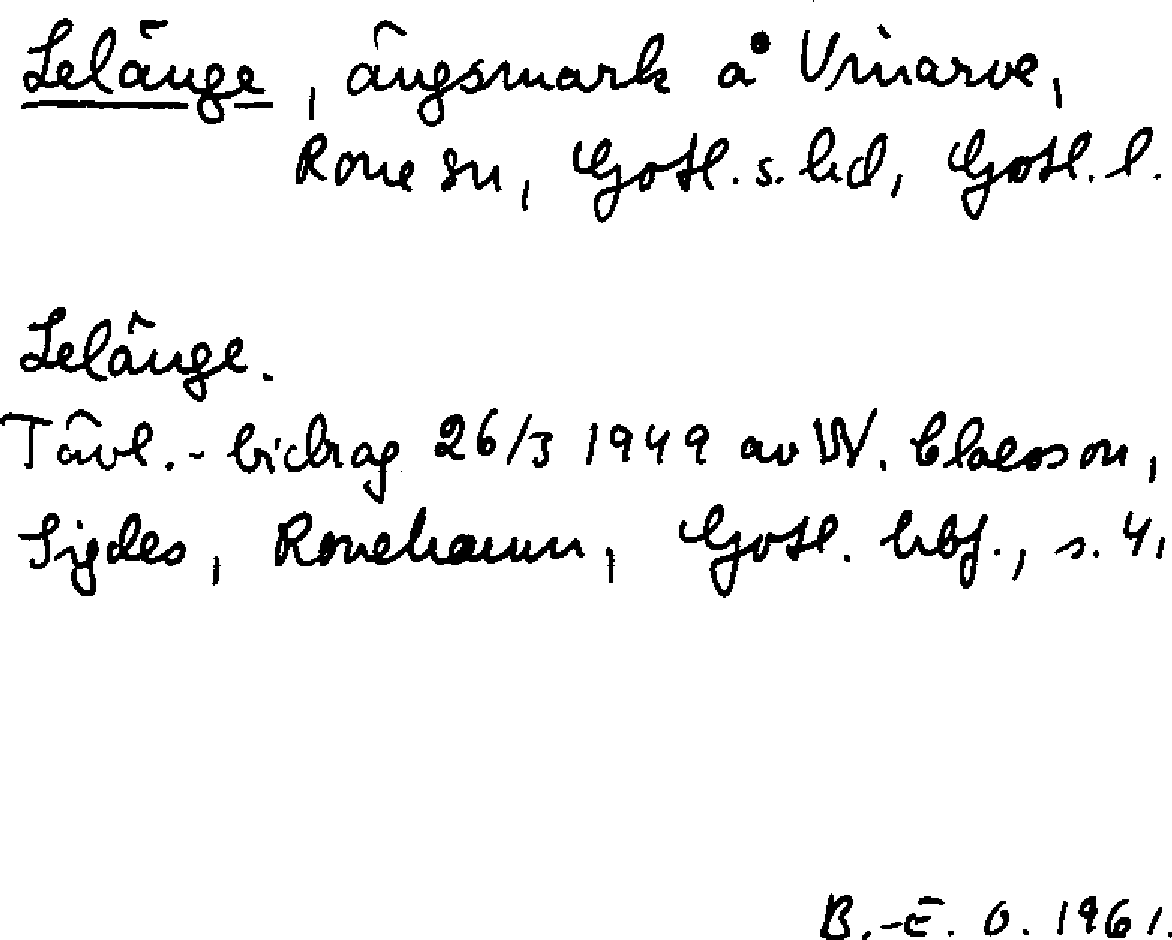 Lelänge, ängsmark å Uvinarve,
Rone sn, Gotl. s. hd, Gotl. l.
Lelänge.
Tävl.-bidrag 26/3 1949 av W. Claesson,
Sigdes, Ronehamn, Gotl. hbf., s. 4.
B.-E. O. 1961.